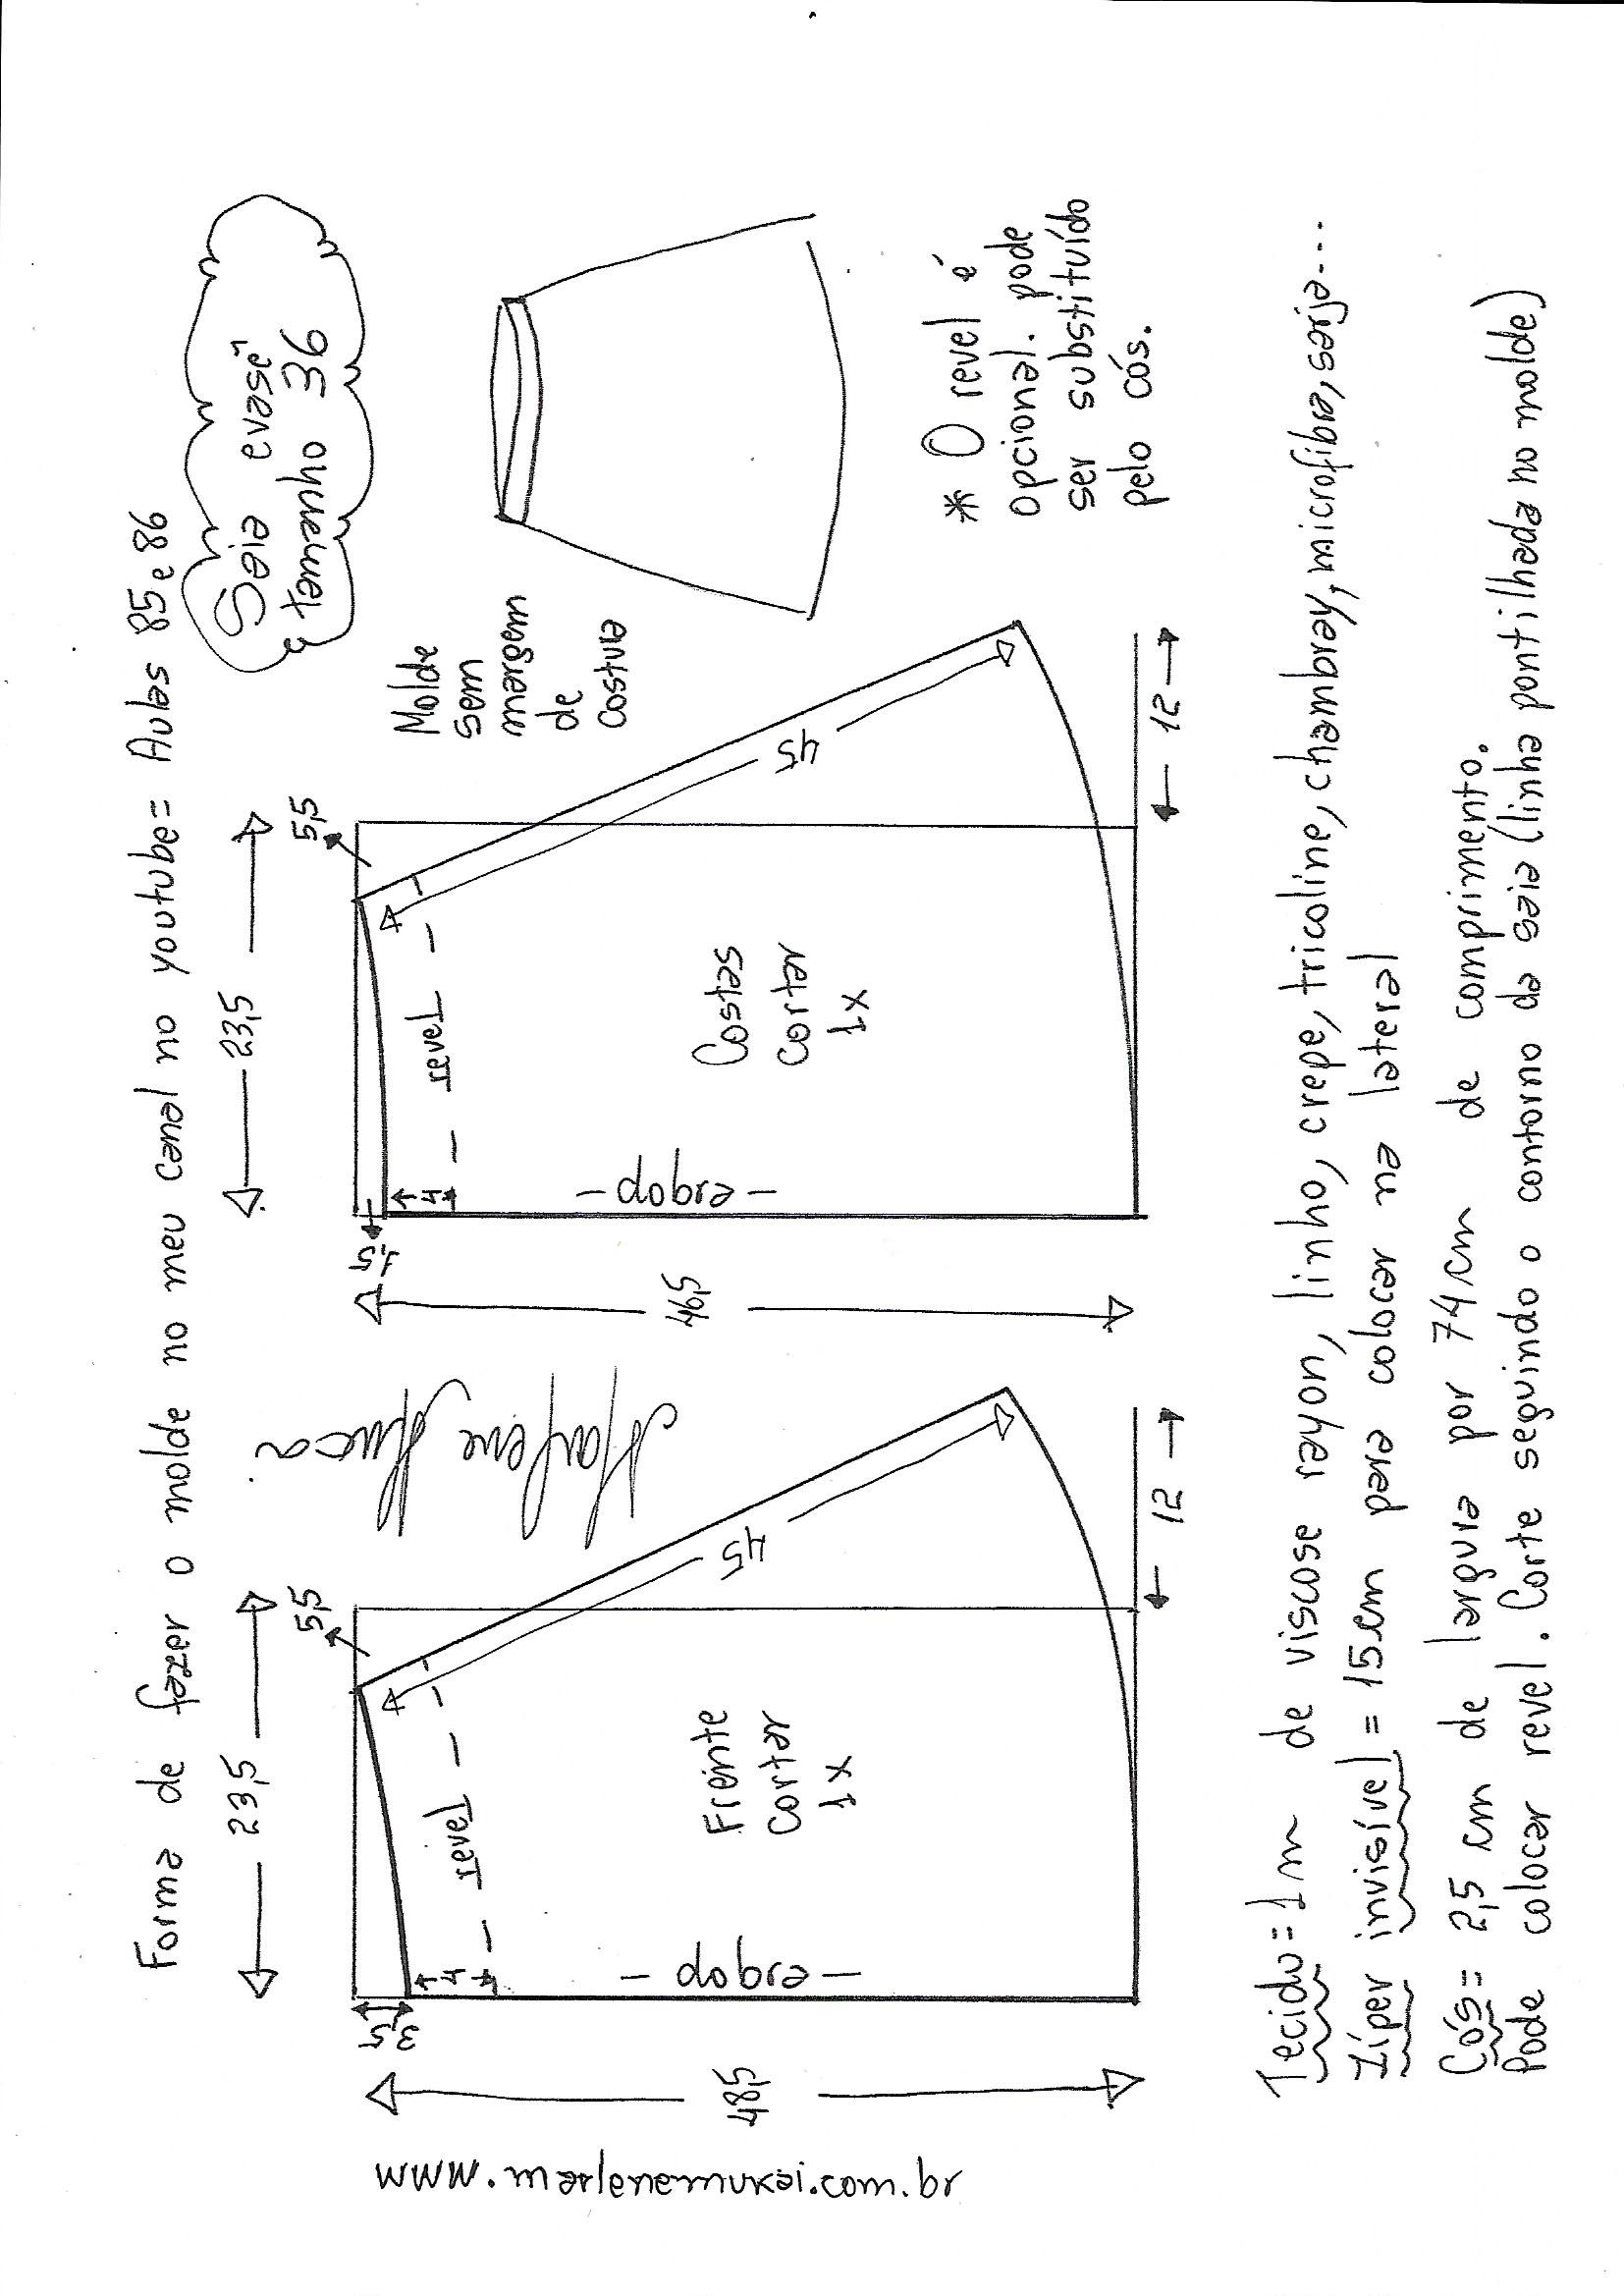 Forma de fazer o molde no meu canal no youtube= Aulas 85 e 86
Saia evasê
tamanho 36
23,5
5,5
3,5
4
revel
dobra
Frente
cortar
1x
45
48,5
12
Marlene
Mukai
23,5
5,5
1,5
4
revel
dobra
Costas
cortar
1x
45
46,5
12
Molde
sem
margem
de
costura
* O revel é
opcional. pode
ser substituído
pelo cós.
Tecido=1m de viscose rayon, linho, crepe, tricoline, chambray, microfibra, sarja...
Zíper invisível = 15cm para colocar na lateral
Cós= 2,5 cm de largura por 74cm de comprimento.
Pode colocar revel. Corte seguindo o contorno da saia (linha pontilhada no molde)
www.marlenemukai.com.br